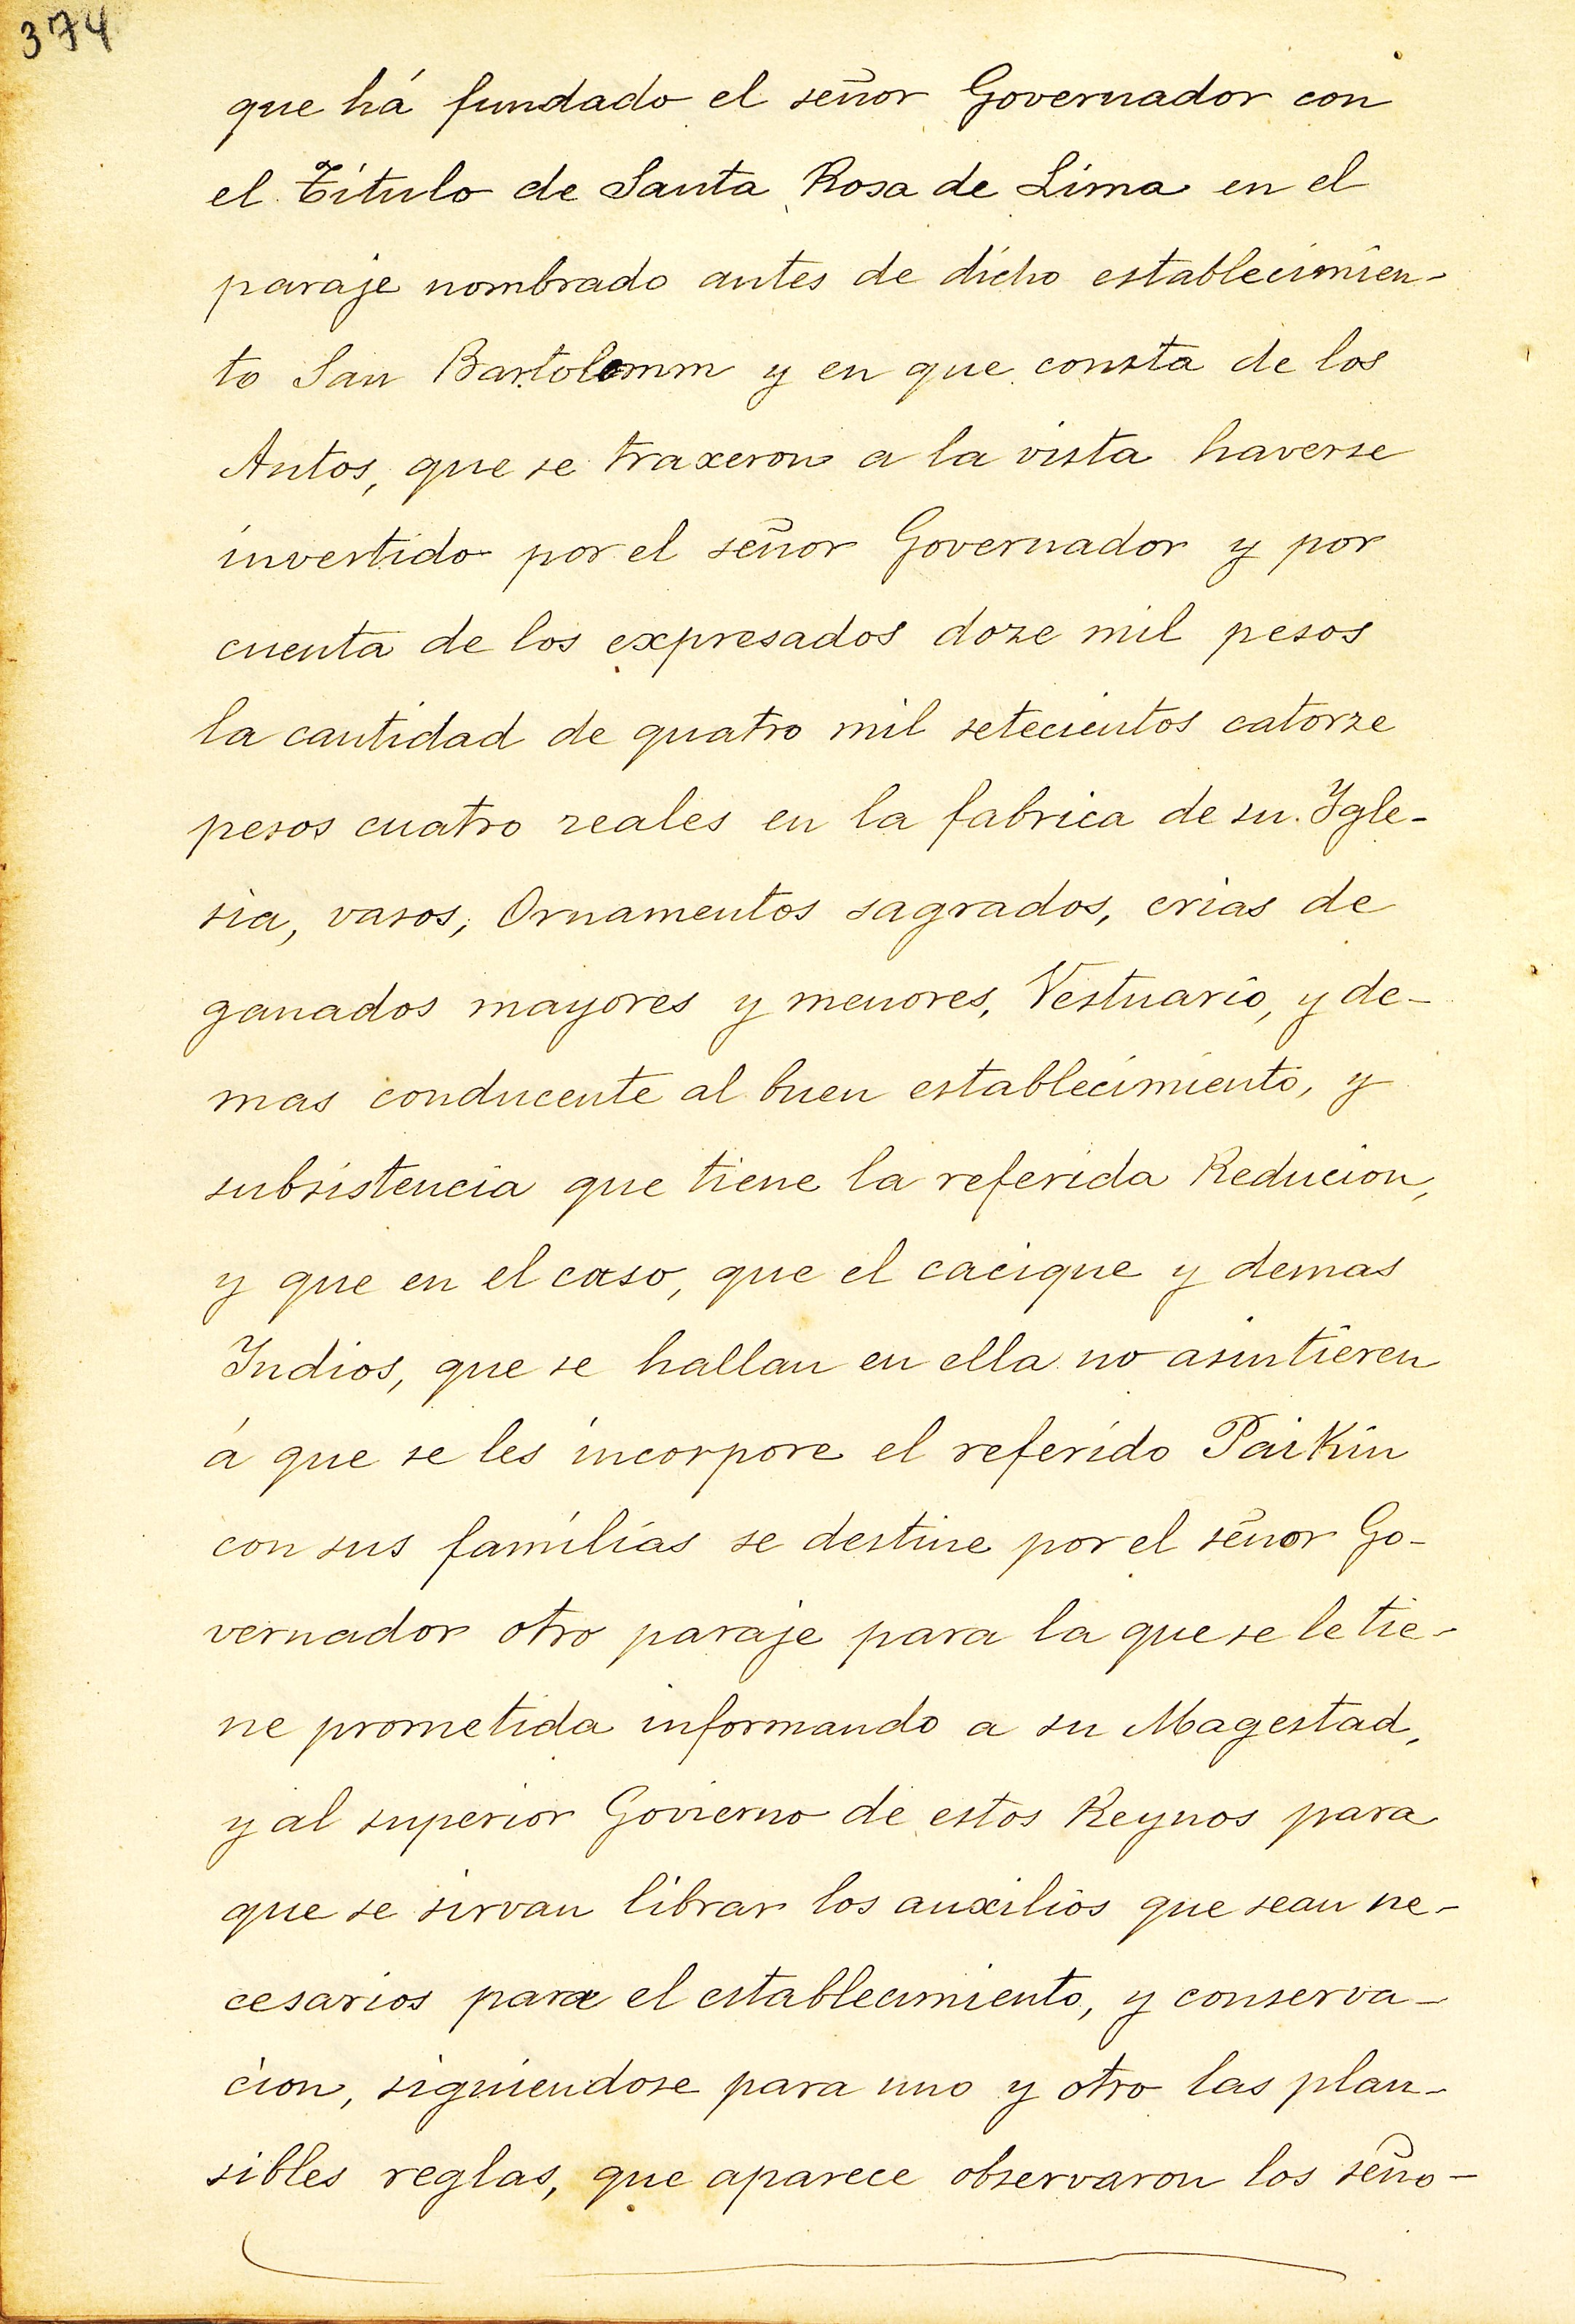 374
que há fundado el señor Governador con
el Título de Santa Rosa de Lima en el
paraje nombrado antes de dicho establecimien-
to San Bartolomm y en que consta de los
Autos, que se traxeron a la vista haverse
invertido por el señor Governador y por
cuenta de los expresados doze mil pesos
la cantidad de quatro mil setecientos catorze
pesos cuatro reales en la fabrica de su Ygle-
sia, vasos, Ornamentos sagrados, crias de
ganados mayores y menores, Vestuario, y de-
mas conducente al buen establecimiento, y
subsistencia que tiene la referida Reducion,
y que en el caso, que el cacique y demas
Yndios, que se hallan en ella no asintieren
á que se les incorpore el referido PaiKin
con sus familias se destine por el señor Go-
vernador otro paraje para la que se le tie-
ne prometida informando a su Magestad,
y al superior Govierno de estos Reynos para
que se sirvan librar los auxilios que sean ne-
cesarios para el establecimiento, y conserva-
cion, siguiendose para uno y otro las plau-
sibles reglas, que aparece observaron los seño-